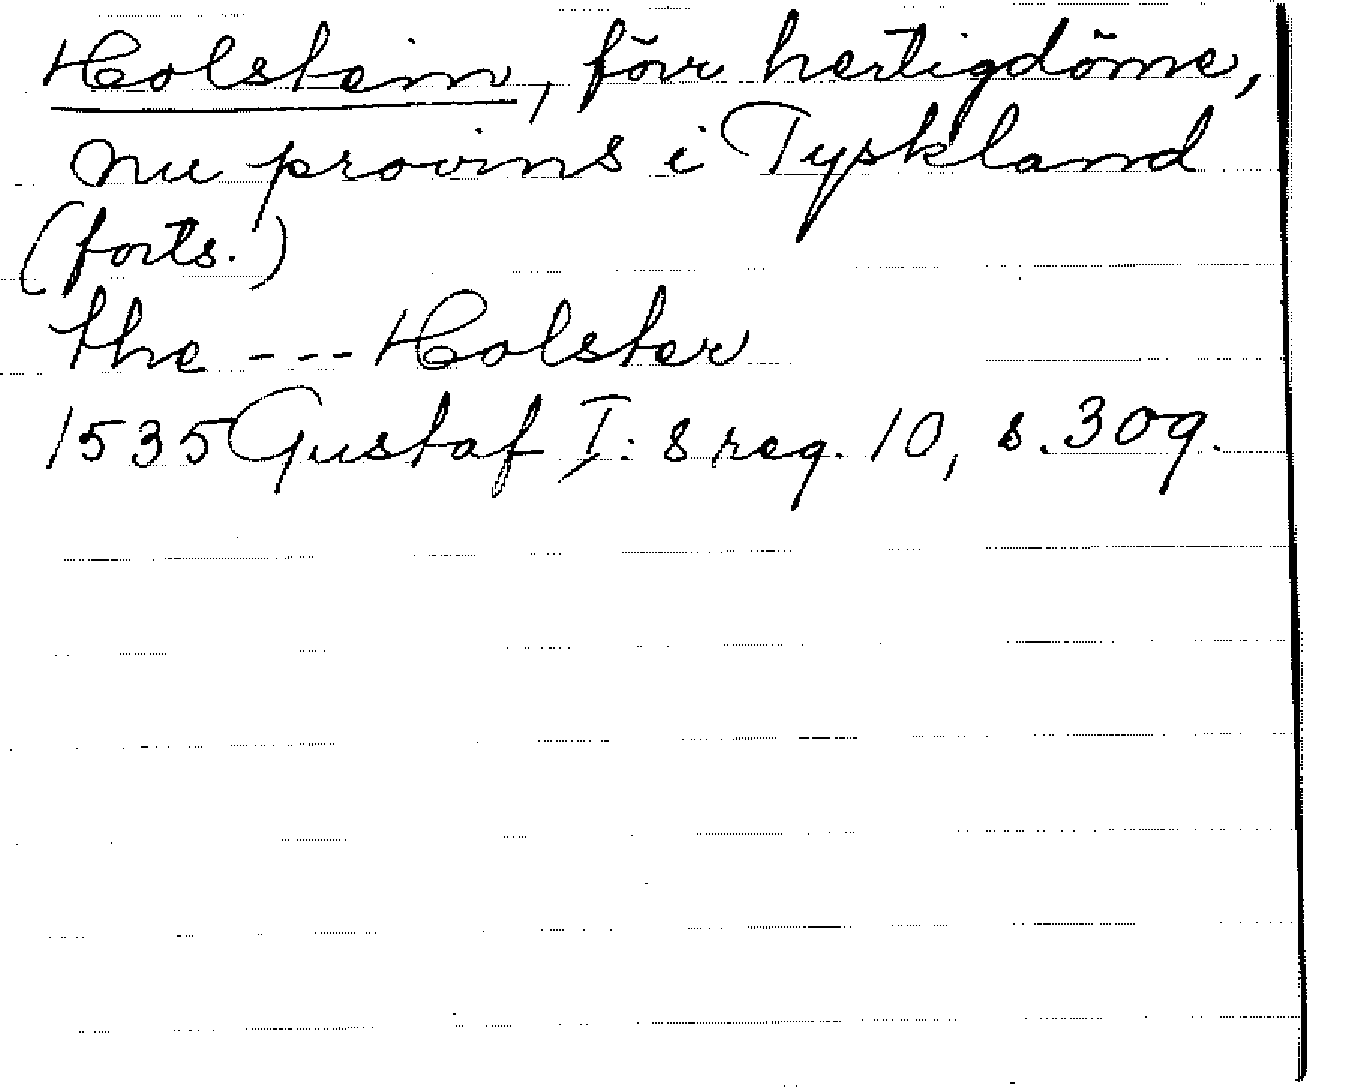 Holstein, förr hertigdöme,
nu provins i Tyskland
(forts.)
the --- Holster
1535 Gustaf I:s reg. 10, s. 309.